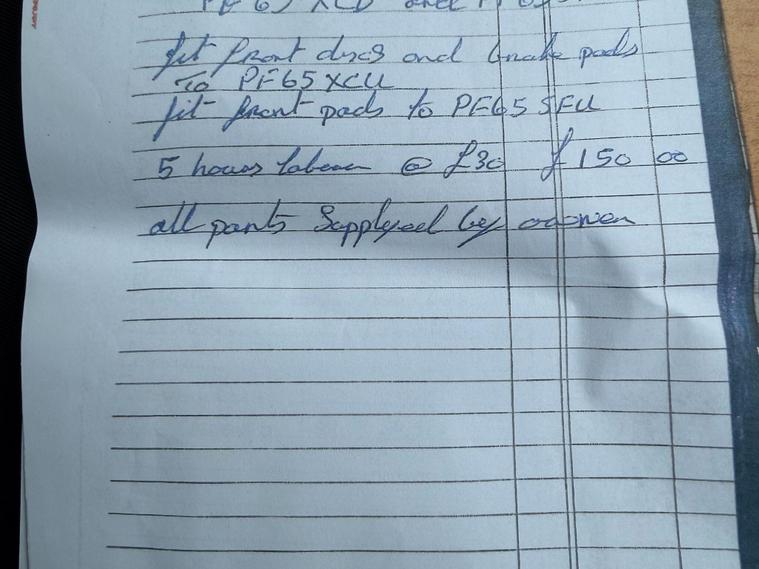 PF65 XCU and
fit front discs and brake pads
To PF65 XCU
fit front pads to PF65 SFU
5 hours labour @ £30 £150 00
all parts Sapplyed by